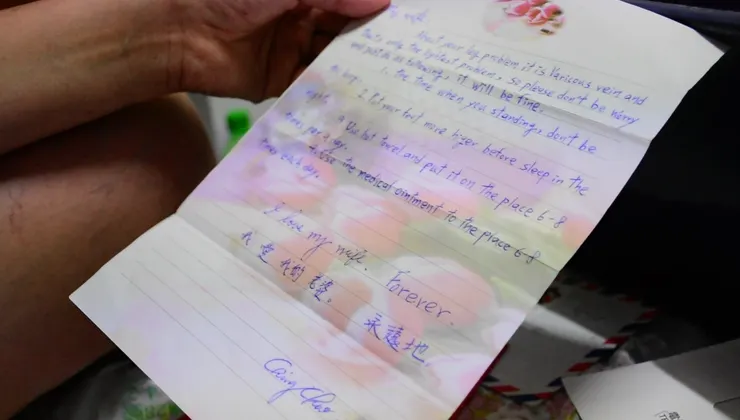 wife:
About your leg problem, it is Varicous vein and
That's only the lightest problem, so please don't be worry
and just do as following, it will be fine.
1. the time when you standing, don't be
too long.
2. Put your foot more higer before sleep in the
night.
3. Use hot towel and put it on the place 6-8
times per a day.
4. Use the medical ointment to the place 6-8
times each day.
I love my wife. Forever.
我爱我的老婆. 永遠地.